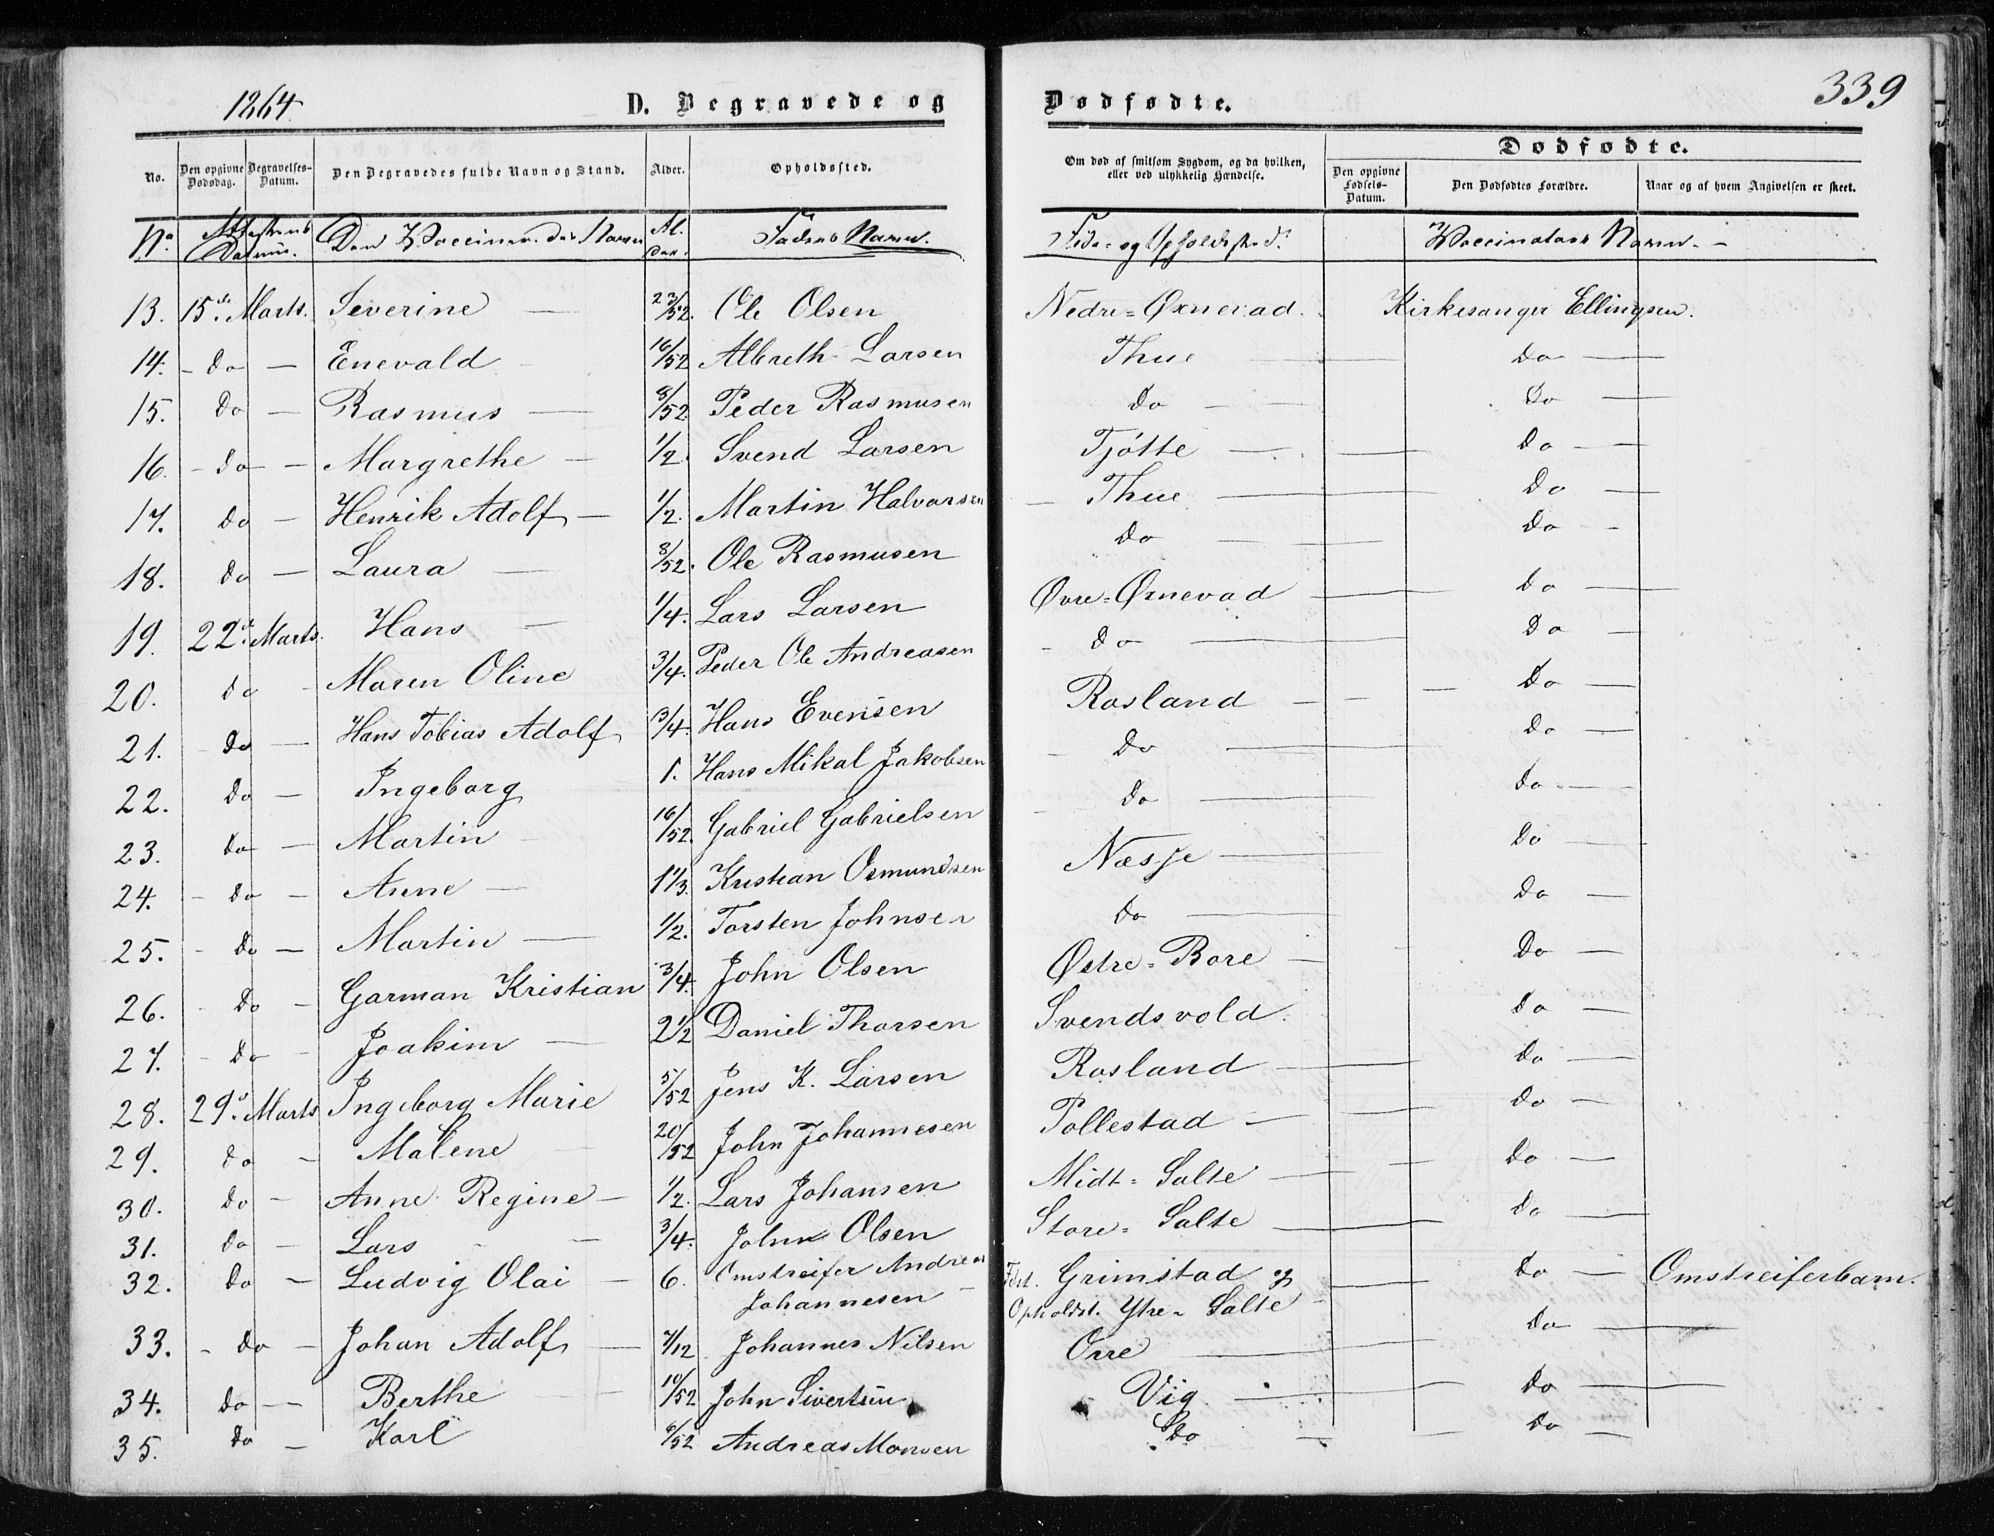 1864. D. Begravede og Dødfødte. 339
No. Den opgivne Dødsdag. Begravelses-Datum. Den Begravedes fulde Navn og Stand. Alder. Opholdssted. Om død af smitsom Sygdom, og da hvilken, eller ved ulykkelig Hændelse. Dødfødte.
Den opgivne Fødsels-Datum. Den Dødfødtes Forældre. Naar og af hvem Angivelsen er skeet.
No Attestens Datum. Den Vaccineredes Navn Al- der. Faderens Navn. Føde- og Opholdsted. Vaccinatørs Navn. -
13. 15de Marts. Severine — 23/52. Ole Olsen Nedre-Øxnevad. Kirkesanger Ellingsen.
14. - do — Enevald - 16/52 Albreth Larsen Thue — do —
15. do — Rasmus — 8/52 Peder Rasmusen do — do —
16. - do — Margrethe — 1/2. Svend Larsen Tjøtte — do —
17. do — Henrik Adolf — 1/2. Martin Halvorsen Thue — do —
18. do — Laura — 8/52. Ole Rasmusen do — do —
19. 22d. Marts. Hans — 1/4. Lars Larsen Øvre-Øxnevad — do —
20. do - Maren Oline 3/4. Peder Ole Andreasen do — do —
21. - do — Hans Tobias Adolf 3/4. Hans Evensen Rosland — do —
22. do — Ingeborg 1. Hans Mikal Jakobsen do — do —
23. do — Martin — 16/52. Gabriel Gabrielsen do — do —
24. - do — Anne — 1 1/3. Kristian Osmundsen Næsje — do —
25. - do — Martin — 1/2. Torsten Johnsen do — do —
26. - do — Garman Kristian 3/4. John Olsen Østre-Bore — do —
27. - do - Joakim — 2 1/2 Daniel Thorsen Svendsvold. do —
28. 29d. Marts Ingeborg Marie 5/52 Jens K. Larsen Rosland — do —
29. do — Malene 20/52 John Johannesen Tollestad — do —
30. do — Anne Regine — 1/2. Lars Johansen Midt-Salte — do —
31. do — Lars — 3/4. John Olsen Store-Salte — do —
32. do — Ludvig Olai — 6. Omstreifer Andreas Johannesen — Fdst. Grimstad og Opholdst. Ytre-Salte — do — Omstreiferbarn.
33. - do — Johan Adolf — 7/12 Johannes Nilsen Orre — do —
34. do — Berthe — 10/52 John Sivertsen Vig — do —
35. do — Karl 6/52 Andreas Monsen do — do —